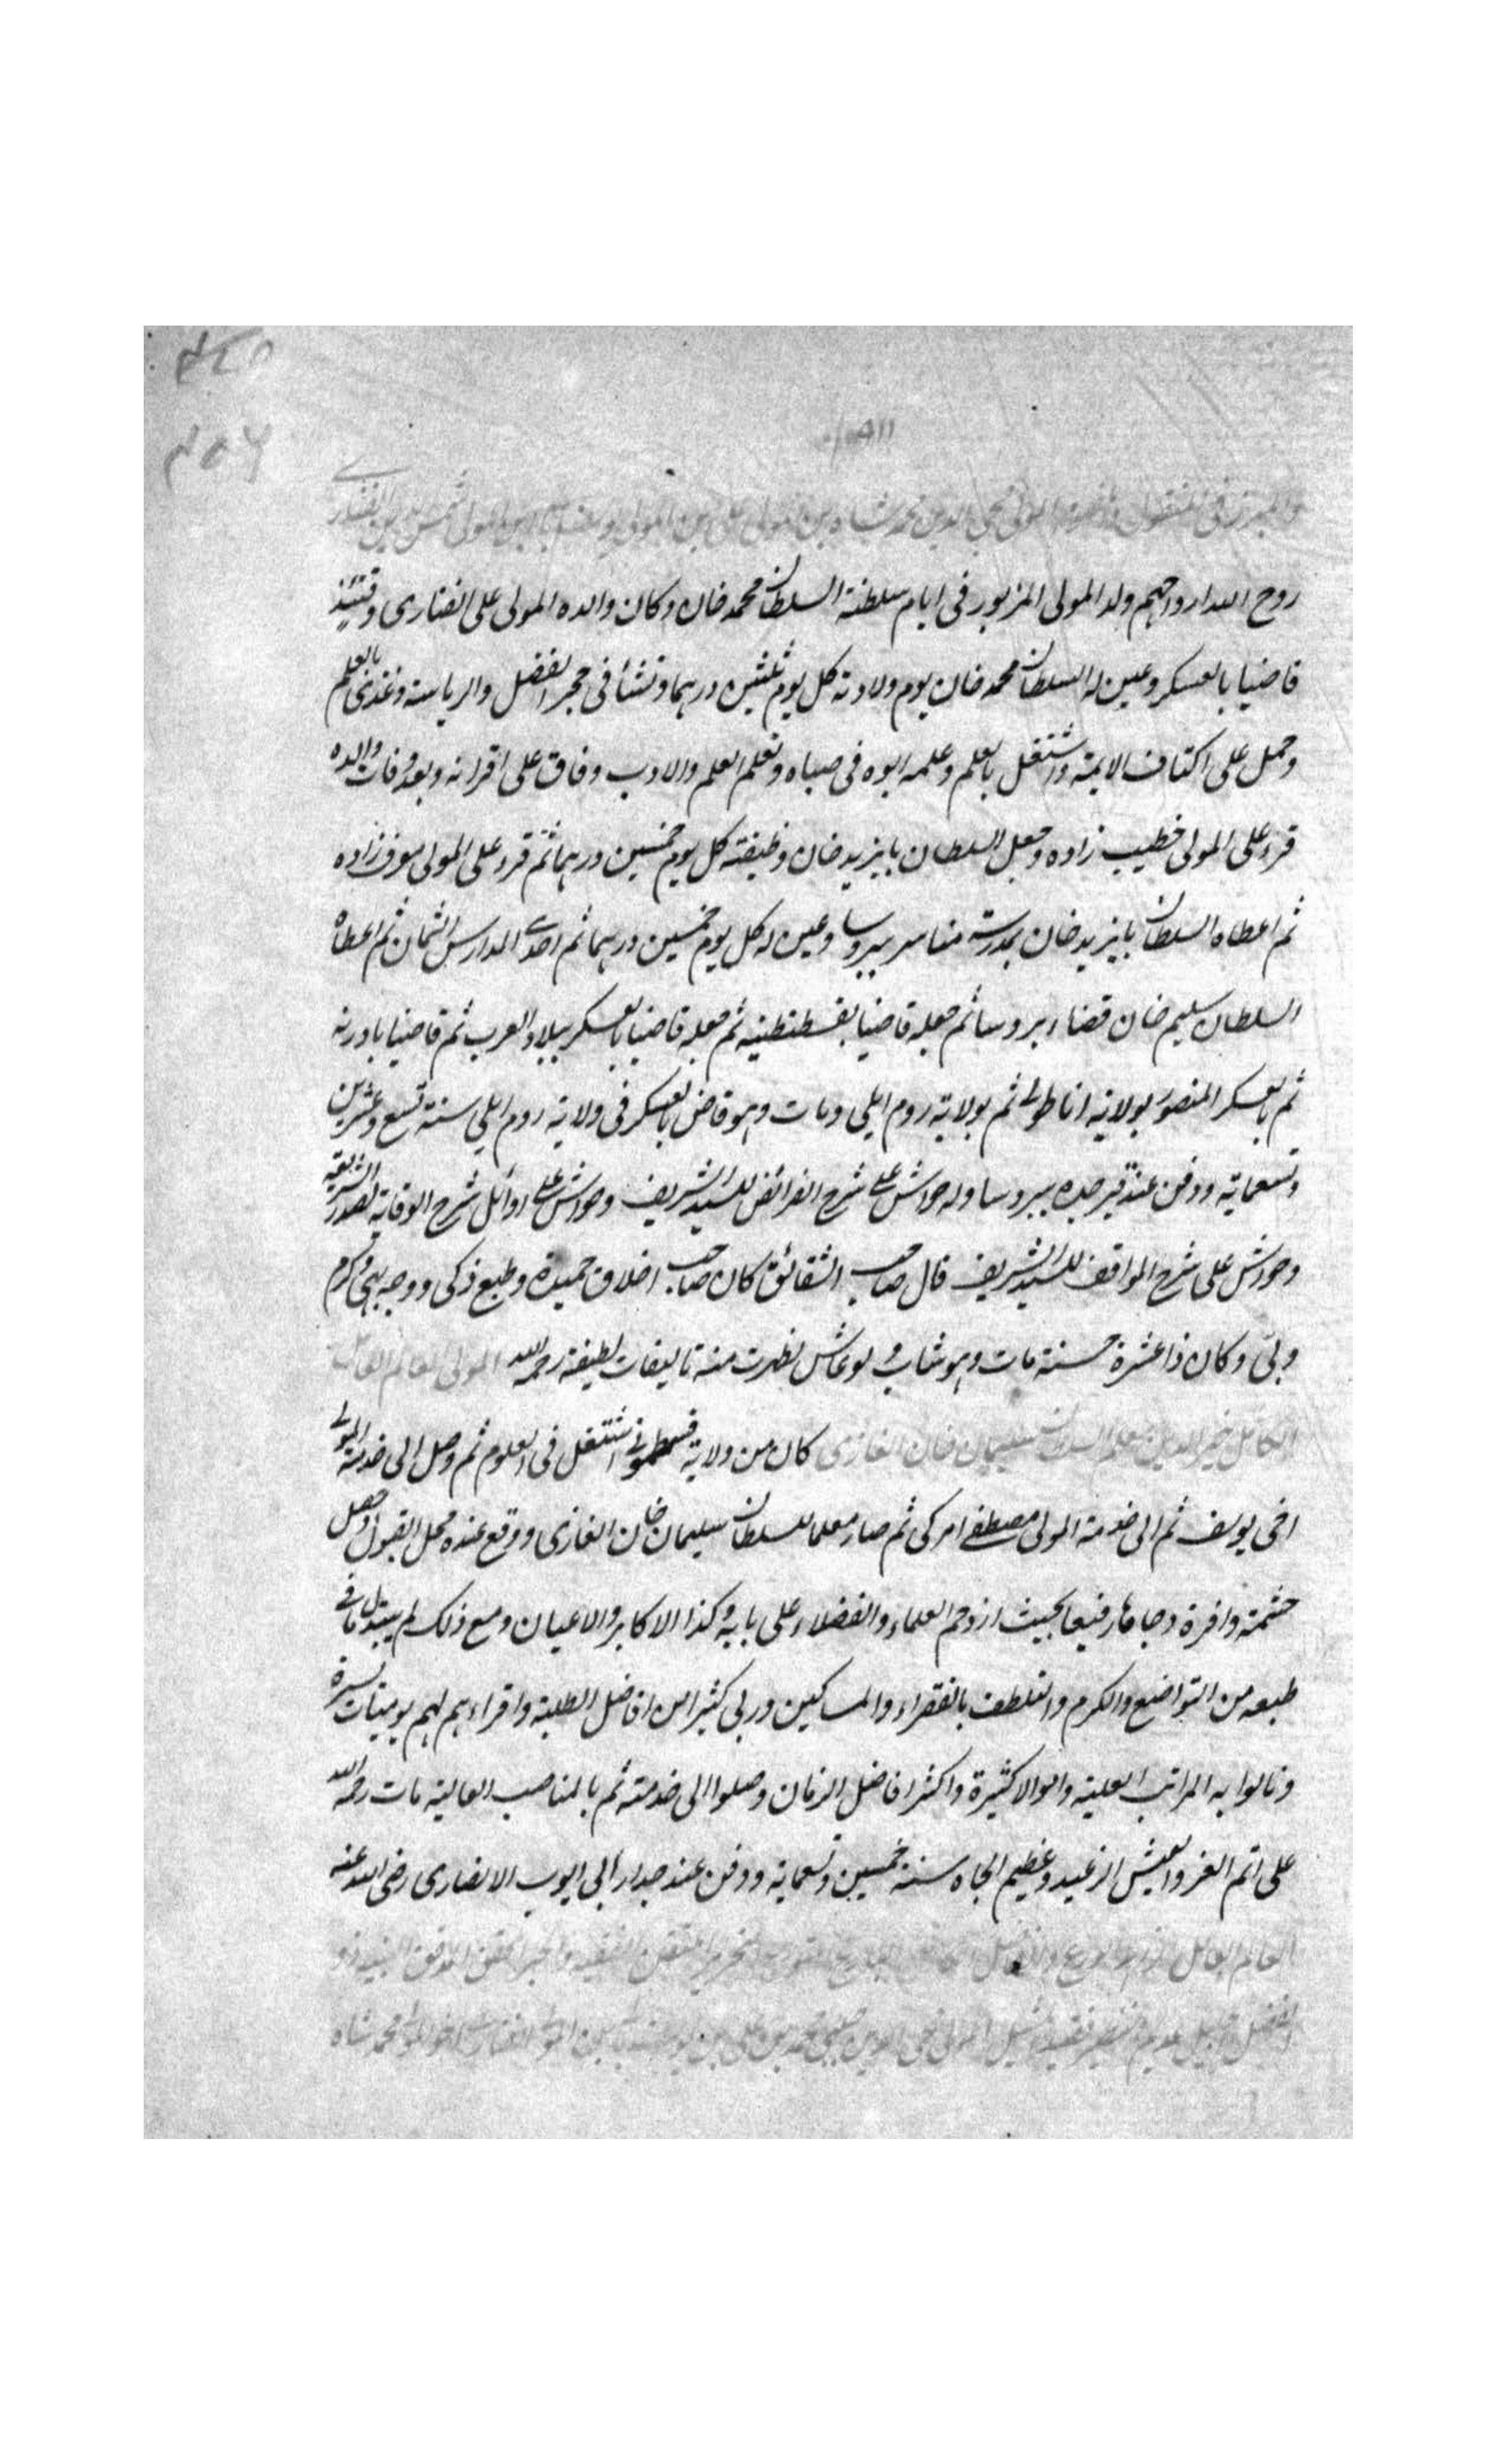 المولى محيى الدين محمد شاه بن المولى على بن المولى يوسف بالى بن المولى شمس الدين الفنارى
روح الله ارواحهم ولد المولى المزبور فى ايام سلطنة السلطان محمد خان وكان والده المولى على الفنارى وقتئذ
قاضيا بالعسكر وعين له السلطان محمد خان يوم ولادته كل يوم ثلثين درهما ونشأ فى حجر الفضل والرياسة وغذى بالعلم
وحمل على اكتاف الايمة واشتغل بالعلم وعلمه ابوه فى صباه وتعلم العلم والادب وفاق على اقرانه وبعد وفات والده
قرء على المولى خطيب زاده وجعل السلطان بايزيد خان وظيفته كل يوم خمسين درهما ثم قرء على المولى معرف زاده
ثم اعطاه السلطان بايزيد خان بمدرسة مناسر ببروسا وعين له كل يوم خمسين درهما ثم احدى المدارس الثمان ثم اعطاه
السلطان سليم خان قضاء بروسا ثم جعله قاضيا بقسطنطنيه ثم جعله قاضيا بالعسكر ببلاد العرب ثم قاضيا بادرنه
ثم بالعسكر المنصور بولاية اناطولى ثم بولاية روم ايلى ومات وهو قاض بالعسكر فى ولاية روم ايلي سنة تسع وعشرين
وتسعماية ودفن عند قبر جده ببروسا وله حواش على شرح الفرائض للسيد الشريف وحواش على اوائل شرح الوقاية لصدر الشريعة
وحواش على شرح المواقف للسيد الشريف قال صاحب الشقائق كان صاحب اخلاق حميدة وطبع ذكى ووجه بهى وكرم
وبى وكان ذا عشرة حسنة مات وهو شاب ولو عاش لظهرت منه تاليفات لطيفة رحمه الله المولى العالم الفاضل
الكامل خير الدين معلم السلطان سليمان خان الغازى كان من ولاية قسطمونى اشتغل فى العلوم ثم وصل الى خدمة المولى
اخى يوسف ثم الى خدمة المولى مصطفى امركى ثم صار معلما للسلطان سليمان خان الغازى ووقع عنده محل القبول وحصل
حشمة وافرة وجاها رفيعا بحيث ازدحم العلماء والفضلاء على بابه وكذا الاكابر والاعيان ومع ذلك لم يتبدل ما فى
طبعه من التواضع والكرم والتلطف بالفقراء والمساكين وربى كثيرا من افاضل الطلبة واقراءهم لهم يوميات يسيرة
ونالوا به المراتب العلية واموالا كثيرة واكثر افاضل الزمان وصلوا الى خدمته ثم بالمناصب العالية مات رحمه الله
على اتم العز والعيش الرغيد وعظيم الجاه سنة خمسين وتسعماية ودفن عند جدار ابى ايوب الانصارى رضى الله عنه
العالم العامل
المولى محيى الدين چلبى محمد بن على بن يوسف بالى بن المولى الفنارى اخو المولى محمد شاه